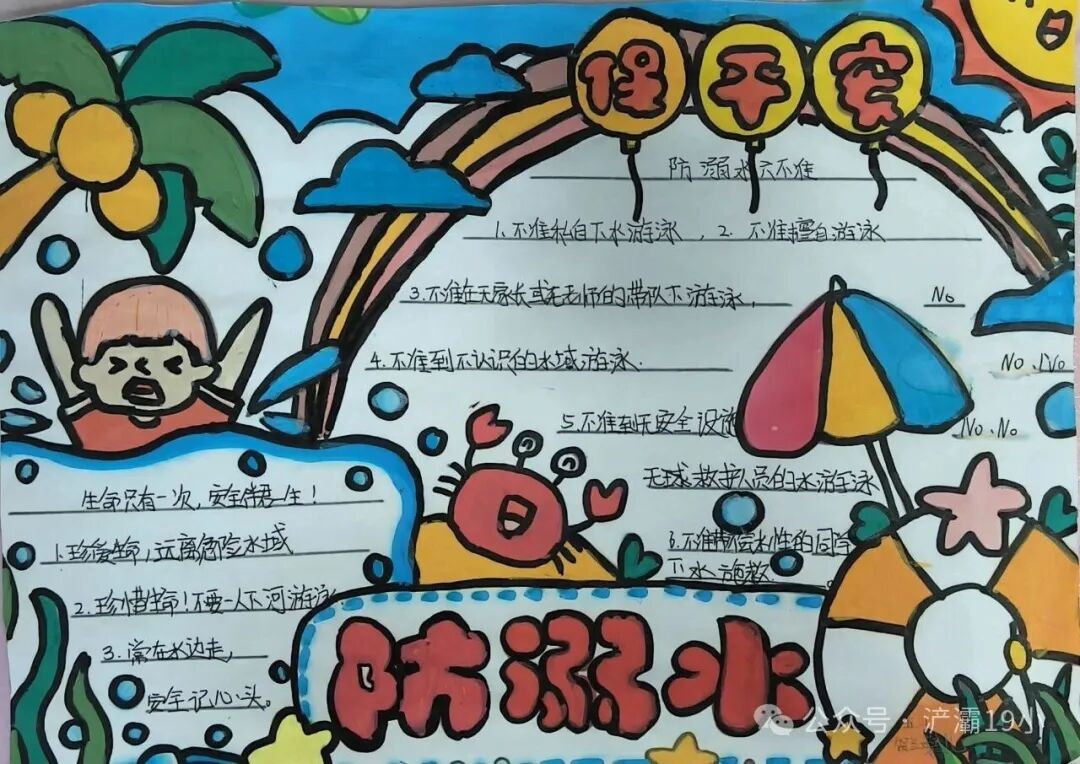 保平安
防溺水六不准
1.不准私自下水游泳，2.不准擅自游泳
3.不准在无家长或无老师的带队下游泳，
No
4.不准到不认识的水域游泳.
No.No
5.不准到无安全设施
No.No
无救护人员的水游泳
6.不准会水性的同学
下水施救.
生命只有一次，安全伴君一生！
1.珍爱生命，远离危险水域
2.珍惜生命！不要一人下河游泳.
3.常在水边走，
安全记心头。
防溺水
公众号·浐灞19小